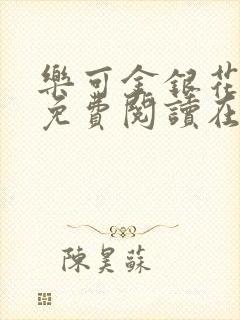 樂可金銀花
免費閱讀在
陳昊蘇